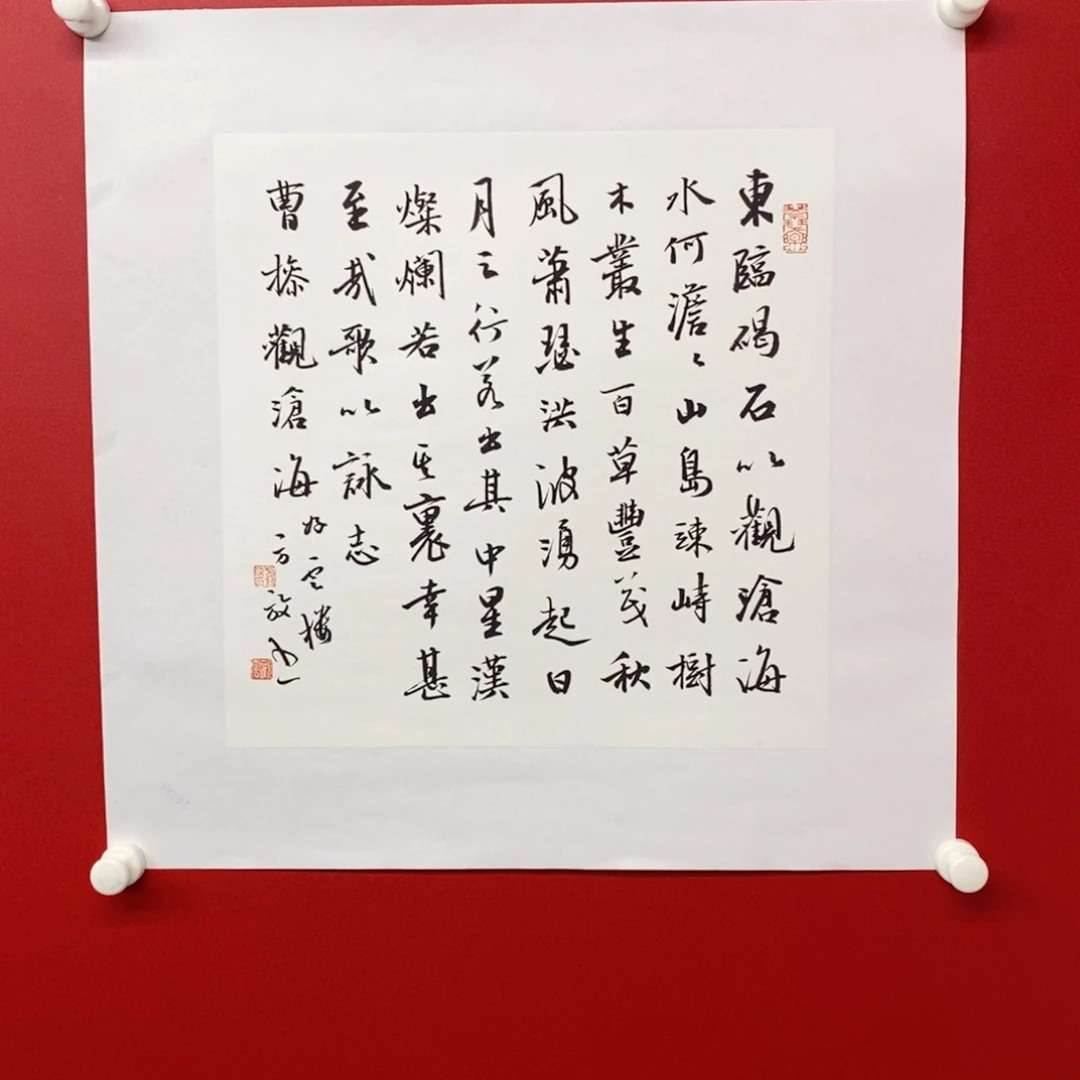 東臨碣石以觀滄海
水何澹〻山島竦峙樹
木叢生百草豐茂秋
風蕭瑟洪波湧起日
月之行若出其中星漢
燦爛若出其裏幸甚
至哉歌以詠志
曹操觀滄海